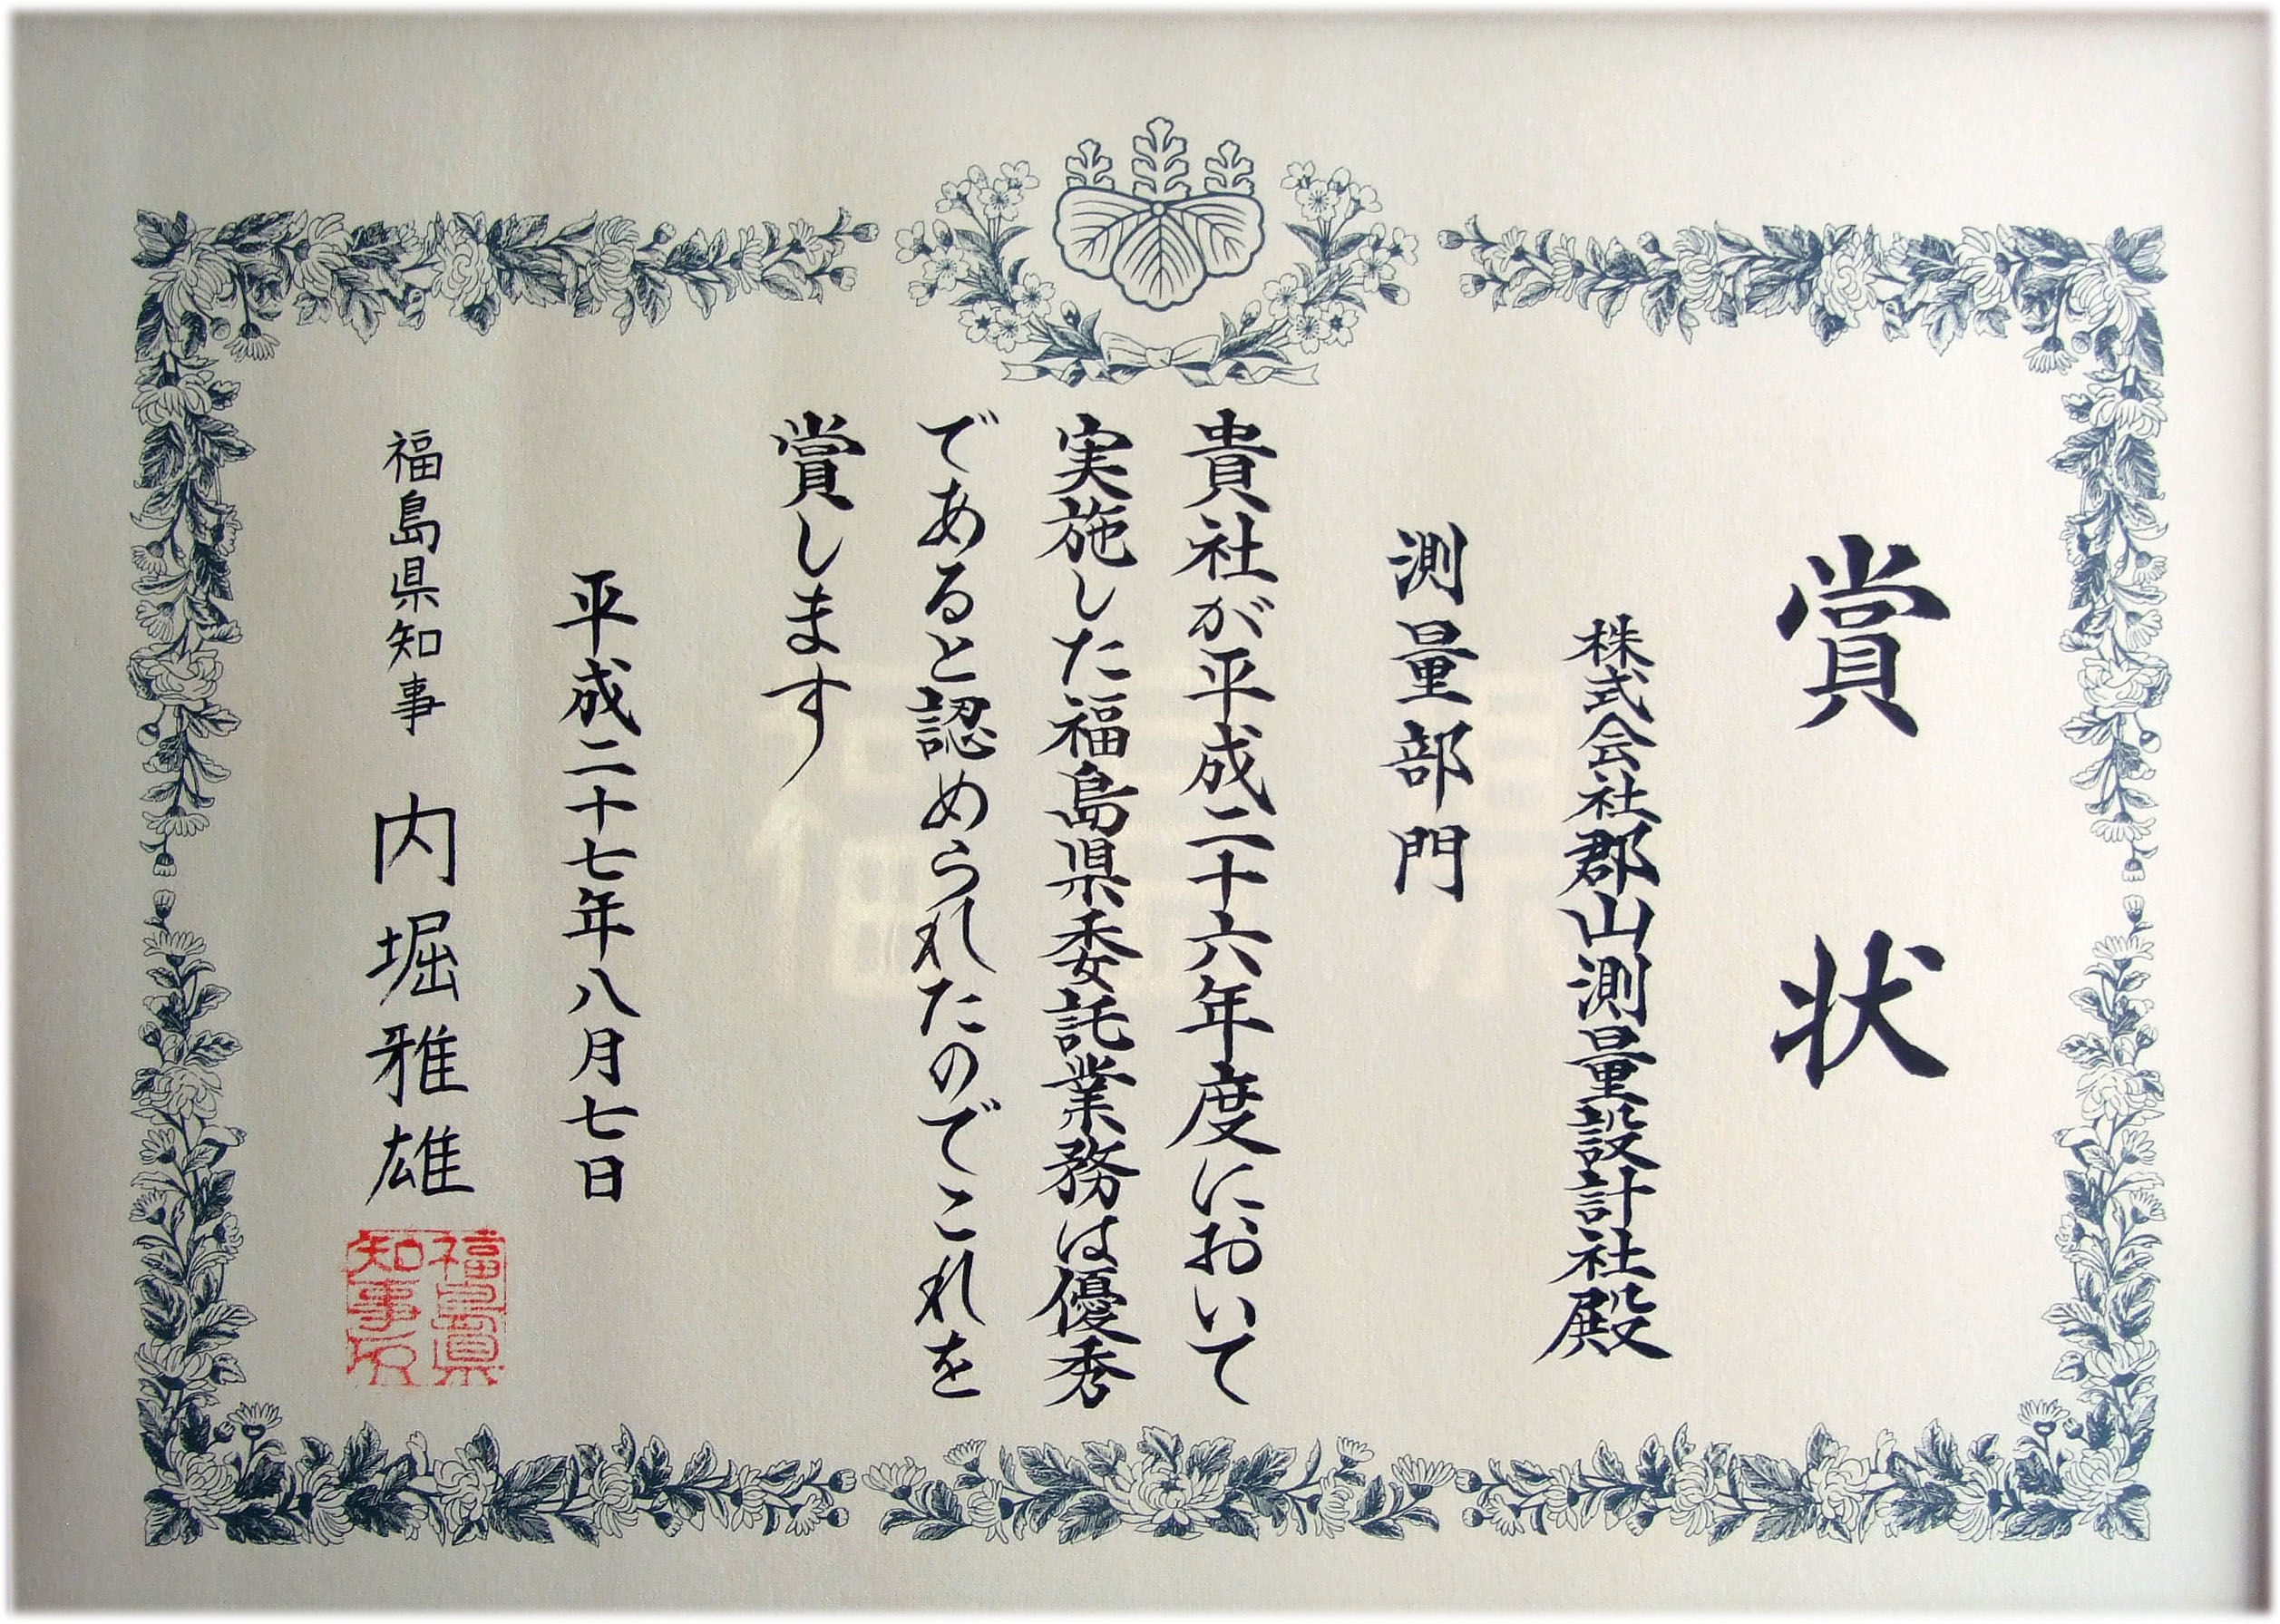 賞状
株式会社郡山測量設計社殿
測量部門
貴社が平成二十六年度において
実施した福島県委託業務は優秀
であると認められたのでこれを
賞します
平成二十七年八月七日
福島県知事 内堀雅雄
福島県
知事印